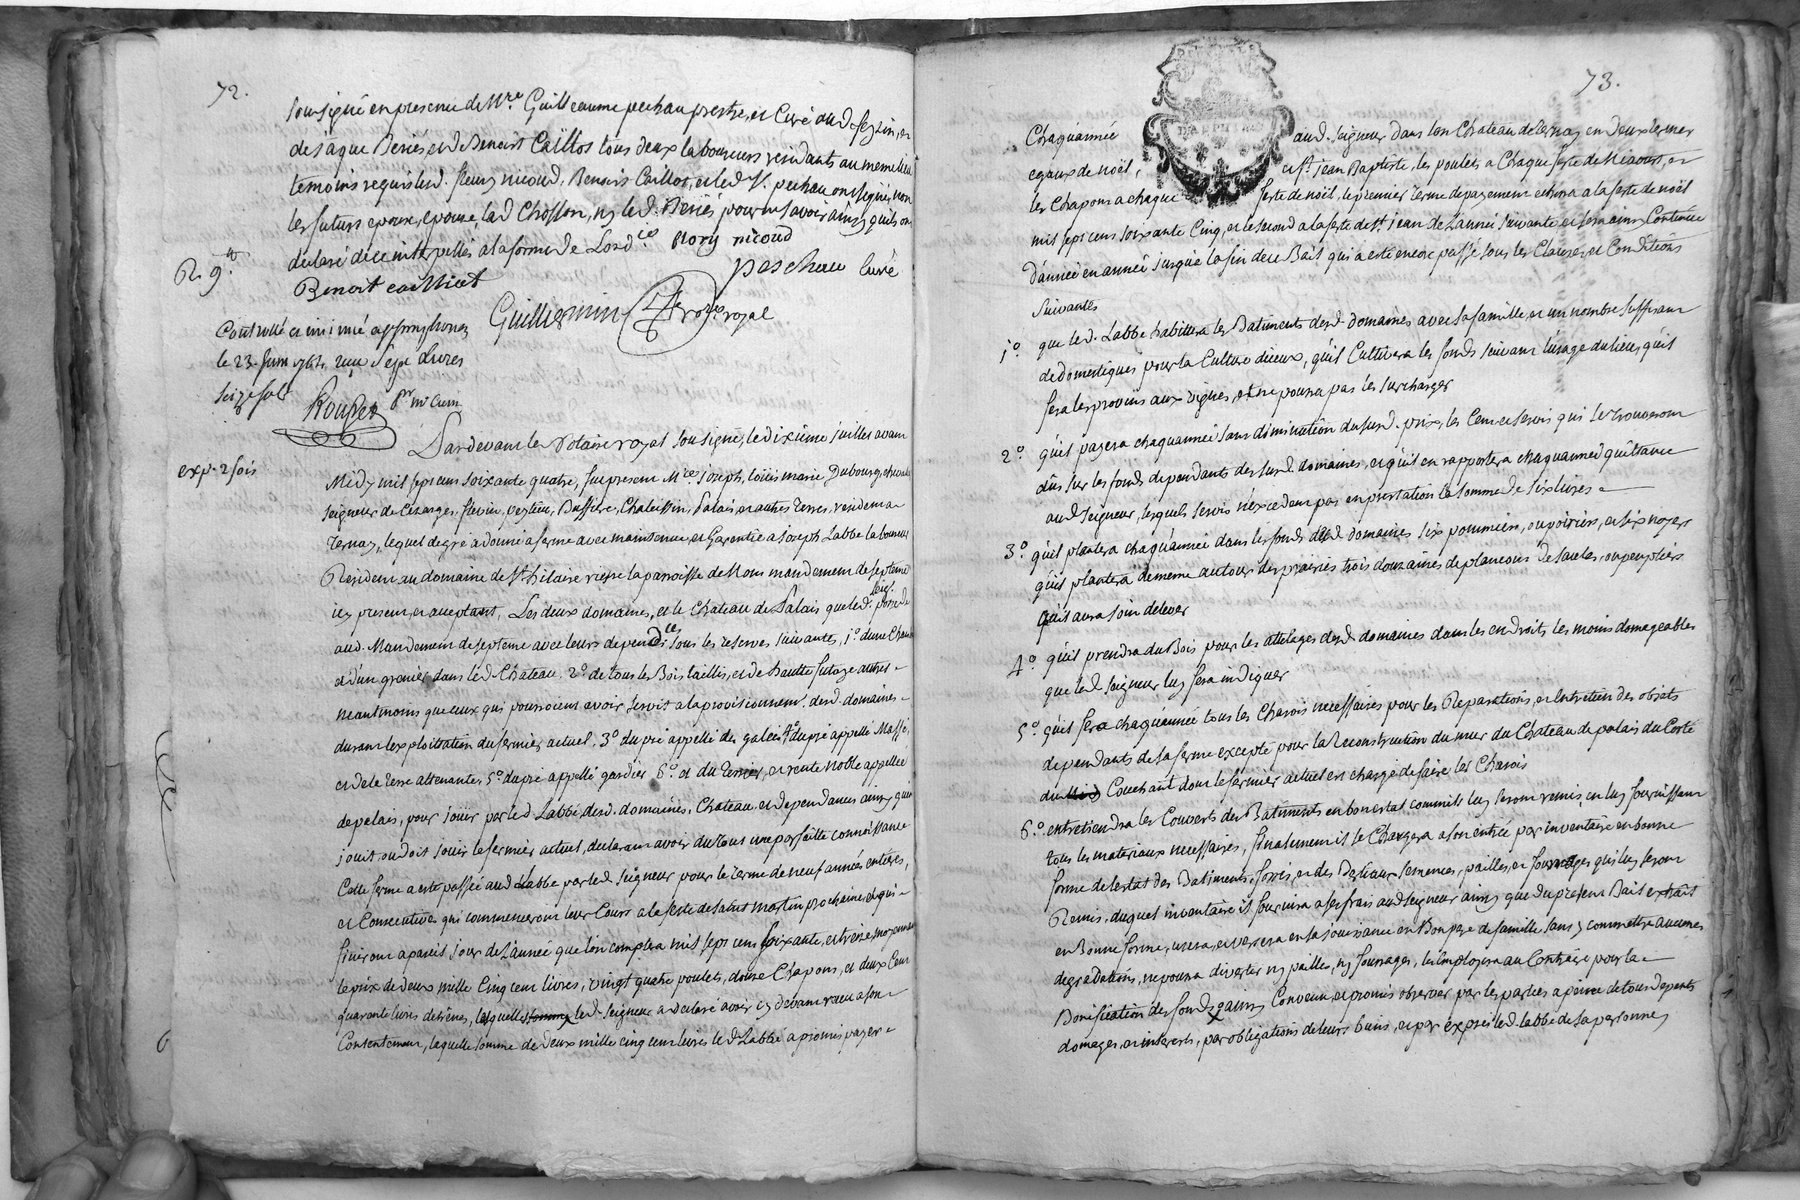 72.
soussigné en presence de Mre. Guilleaume pechau prestre, et Curé dud. seyzin, et
de Jaque Beriés, et de Benoist Caillos tous deux laboureurs residants au meme lieu
temoins requis led. fleury nicoud, Benoist Caillot, et led. Sr. pechau ont signé, non
les futurs epoux, epouse, lad. Chosson, ny led. Beriés pour ne savoir ainsy quils ont
declaré de ce interpellés a la forme de Lordce. flory nicoud
R. 9 tt
Benoit caillliot
paschau curé
Guillermin No.re royal
Controllé et insinué a st simphorien
le 23. Juin 1764 reçu sept livres
seize sols
pr. mr
exp. 2 fois
Pardevant le Notaire royal soussigné, le dixieme juillet avant
Midy mil sept cens soixante quatre, fut present Mre. joseph, loüis marie, Dubourg, chevalier
seigneur de Cezarges, flevin, peytieu, Buffiere, Chaleissin, Palais, et autres Terres, resident a
Ternay, lequel de gré a donné a ferme avec maintenue, et Garentie a Joseph Labbe laboureur
Resident au domaine de St. hilaire riere la parroisse de Mons mandement de septeme
icy present, et acceptant, Les deux domaines, et le Chateau de Palais que led. seigr. possede
aud. Mandement de septeme avec leurs dependces. sous les reserves suivantes, 1o. d'une Chambre
et d'un grenier dans led. Chateau. 2o. de tous les Bois taillis, et de hautte futaye autres
neantmoins que ceux qui pouroient avoir servit a la provisionnemt. desd. domaines
durant lexploitation du fermier actuel. 3o. du pré appellé des galées 4o. du pré appellé Masse,
et de la terre attenante, 5o. du pré appellé gardier 6o. et du Terrier, et rente Noble appellée
de palais, pour joüir par led. Labbe desd. domaines, Chateau et dependances ainsy que
joüit, ou doit joüir le fermier actuel, declarant avoir du tout une parfaitte connoissance
Cette ferme a eté passée aud. Labbe par led. seigneur pour le terme de neuf années entieres,
et Consecutives qui commenceront leur Cours a la feste de saint martin prochaine, et qui
finiront a pareil jour de L'année que lon comptera mil sept cens soixante, et treize, moyennant
le prix de deux mille Cinq cent livres, vingt quatre poulets, douze Chapons, et deux Cent
quarante livres detrenes, lesquelles led. seigneur a declaré avoir cy devant reçu a son
Contentement, laquelle somme de deux mille cinq cent livres led. Labbe a promis payer
73.
Chaquannée aud. seigneur dans son Chateau de Ternay en deux termes
egaux de noël, et St. jean Baptiste, les poulets a Chaque feste de Niaoust, et
les Chapons a chaque feste de noël, le premier terme de payement echera a la feste de noël
mil sept cens soixante Cinq, et le second a la feste de St. jean de L'année suivante, et sera ainsy Continué
d'année en année jusqua la fin de ce Bail qui a esté encore passé sous les Clauses, et Conditions
suivantes
1o. que led. Labbe habittera les Batiments desd. domaines avec sa famille, et un nombre suffisant
de domestiques pour la Culture diceux, quil Cultivera les fonds suivant l'usage du lieu, quil
fera les provins aux vignes, et ne pourra pas les surcharger
2o. quil payera chaquannée sans diminution dususd. prix, les Cens et servis qui se trouveront
dûs sur les fonds dependants desusd. domaines, et quil en rapportera chaquannée quittance
aud. seigneur, lesquels servis n'excedent pas en prestation la somme de six livres
3o. quil plantera chaquannée dans les fonds desd. domaines six pommiers, ou poiriers, et six noyers
quil plantera de meme autour des prairies trois douzaines de plancons de saules, ou peupliers
quil aura soin delever
4o. quil prendra du Bois pour les attelages desd. domaines dans les endroits les moins domageables
que led. seigneur luy fera indiquer
5o. quil fera chaquannée tous les Charois necessaires pour les Reparations, et Entretien des objets
dependants de sa ferme excepté pour la Reconstruction du mur du Chateau de palais du Coté
du Couchant dont le fermier actuel est chargé de faire les Charois
6o. entretiendra les Couverts des Batiments en bon estat comme ils luy seront remis en luy fournissant
tous les materiaux necessaires, finalement il se Chargera a son entrée par inventaire en bonne
forme de lestat des Batiments, foins, et des Bestiaux semences, pailles, et fourrages qui luy seront
Remis, duquel inventaire il fournira a ses frais aud. seigneur ainsy que du present Bail extrait
en Bonne forme, usera, et versera en sa jouissance en Bon pere de famille sans y commettre aucunes
degradations, ne poura divertir ny pailles, ny fourrages, les Employera au Contraire pour la
Bonification des fonds, ainsy Convenu, et promis observer par les parties a peine de tous depents
domages, et interests, par obligations de leurs biens, et par exprès led. Labbe de sa personne